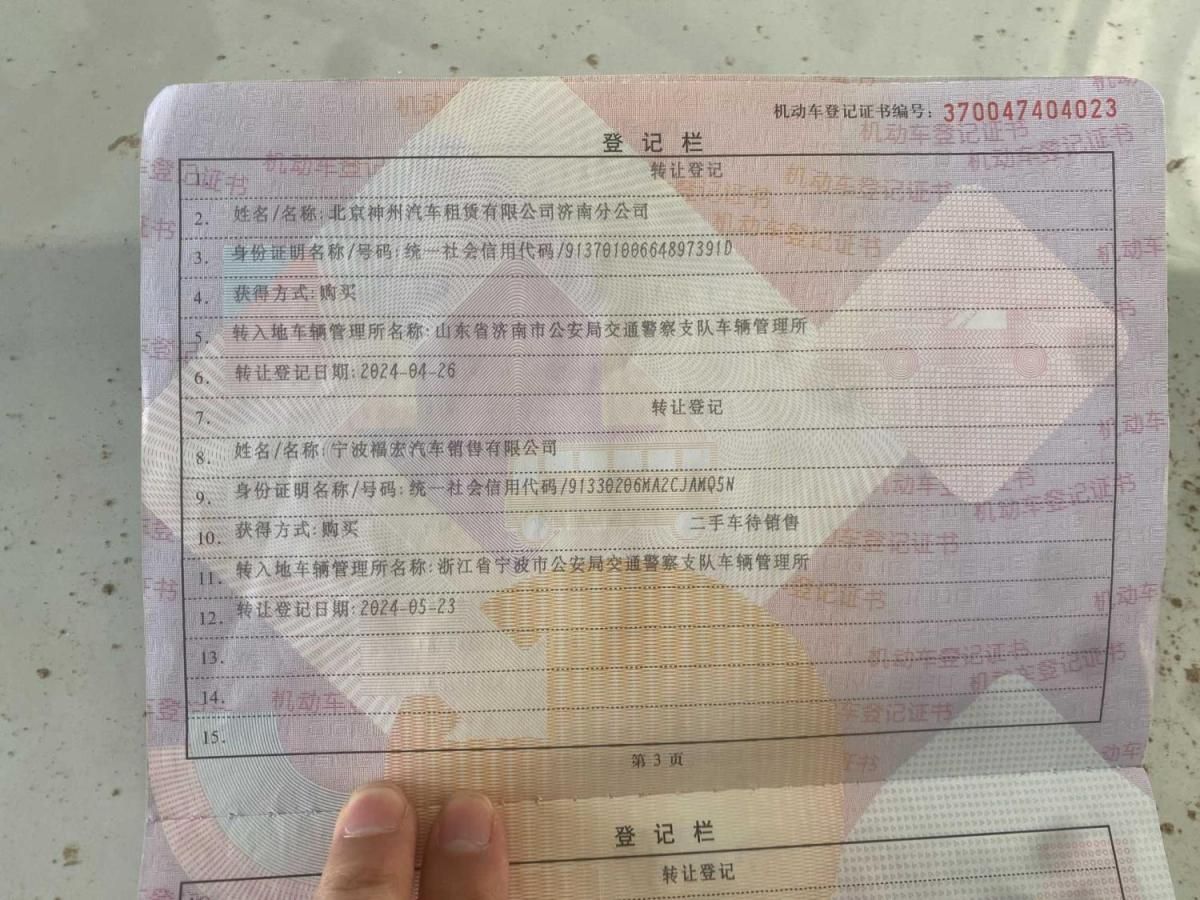 机动车登记证书编号：370047404023
登记栏
1. 转让登记
2. 姓名/名称:北京神州汽车租赁有限公司济南分公司
3. 身份证明名称/号码:统一社会信用代码/91370100664897391D
4. 获得方式:购买
5. 转入地车辆管理所名称:山东省济南市公安局交通警察支队车辆管理所
6. 转让登记日期:2024-04-26
7. 转让登记
8. 姓名/名称:宁波福宏汽车销售有限公司
9. 身份证明名称/号码:统一社会信用代码/91330206MA2CJAMQ5N
10. 获得方式:购买 二手车待销售
11. 转入地车辆管理所名称:浙江省宁波市公安局交通警察支队车辆管理所
12. 转让登记日期:2024-05-23
13.
14.
15.
第 3 页
登记栏
转让登记